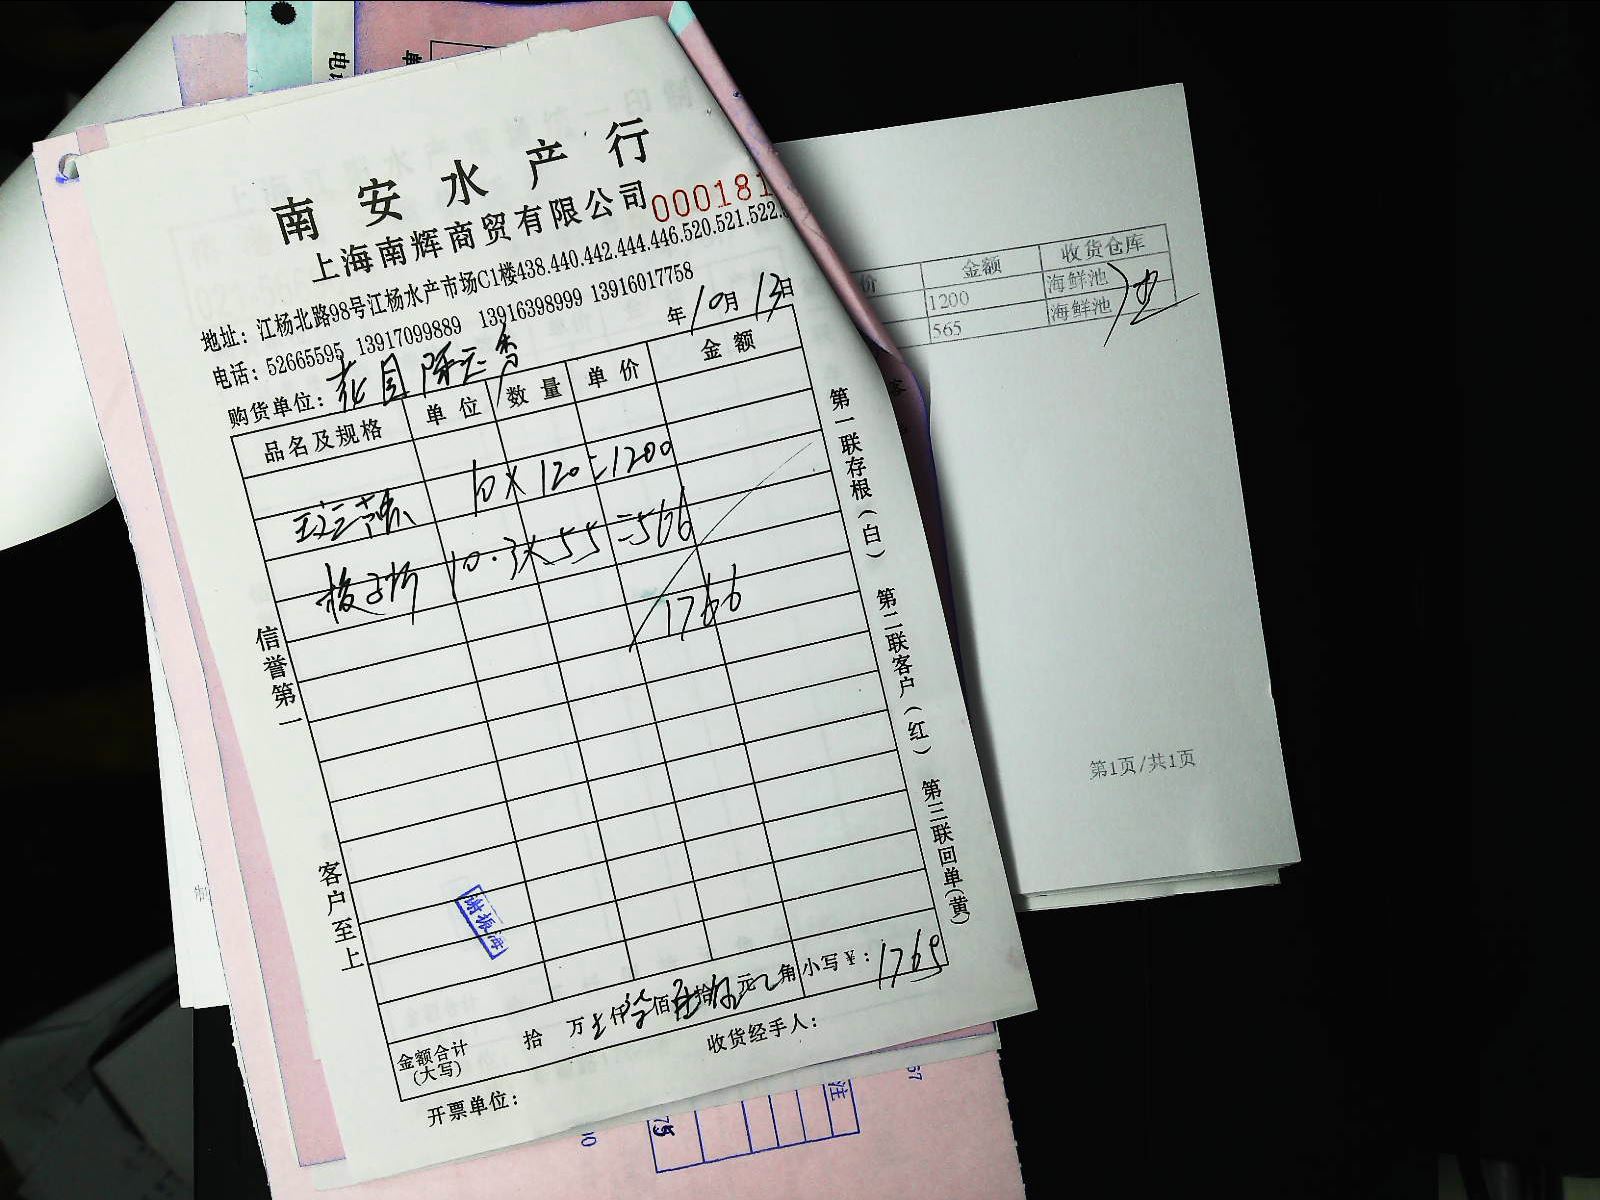 南安水产行
上海南辉商贸有限公司 000181
地址：江杨北路98号江杨水产市场C1楼438.440.442.444.446.520.521.522.
电话：52665595 13917099889 13916398999 13916017758
购货单位： 年10月13日
品名及规格 单位 数量 单价 金额
10×120=1200
10.3×55=566
1766
信誉第一
客户至上
第一联存根（白） 第二联客户（红） 第三联回单（黄）
谢振海
金额合计（大写） 拾 万 仟 佰 拾 元 角 小写¥：1765
开票单位： 收货经手人：
价 金额 收货仓库
1200 海鲜池
565 海鲜池
第1页/共1页
75
注
10
67